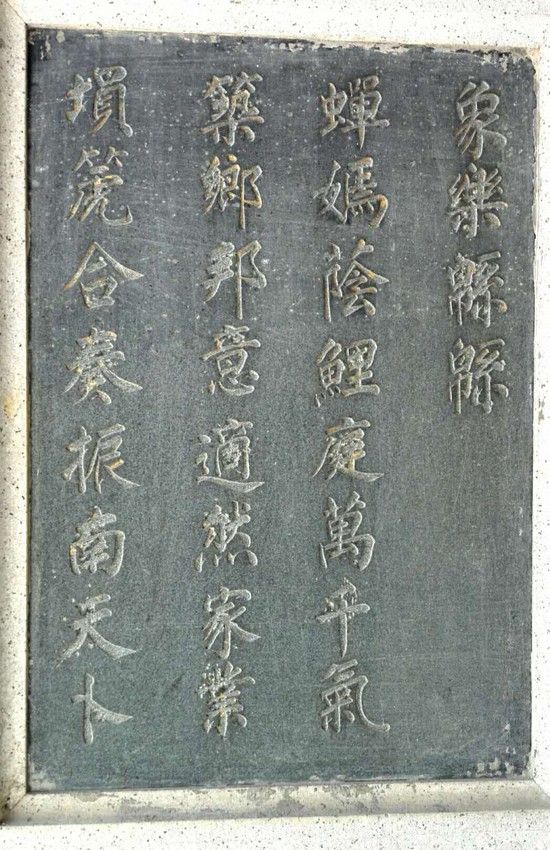 塤篪合奏振南天卜
築鄉邦意適然家業
蟬嫣蔭鯉庭萬千氣
象樂緜緜